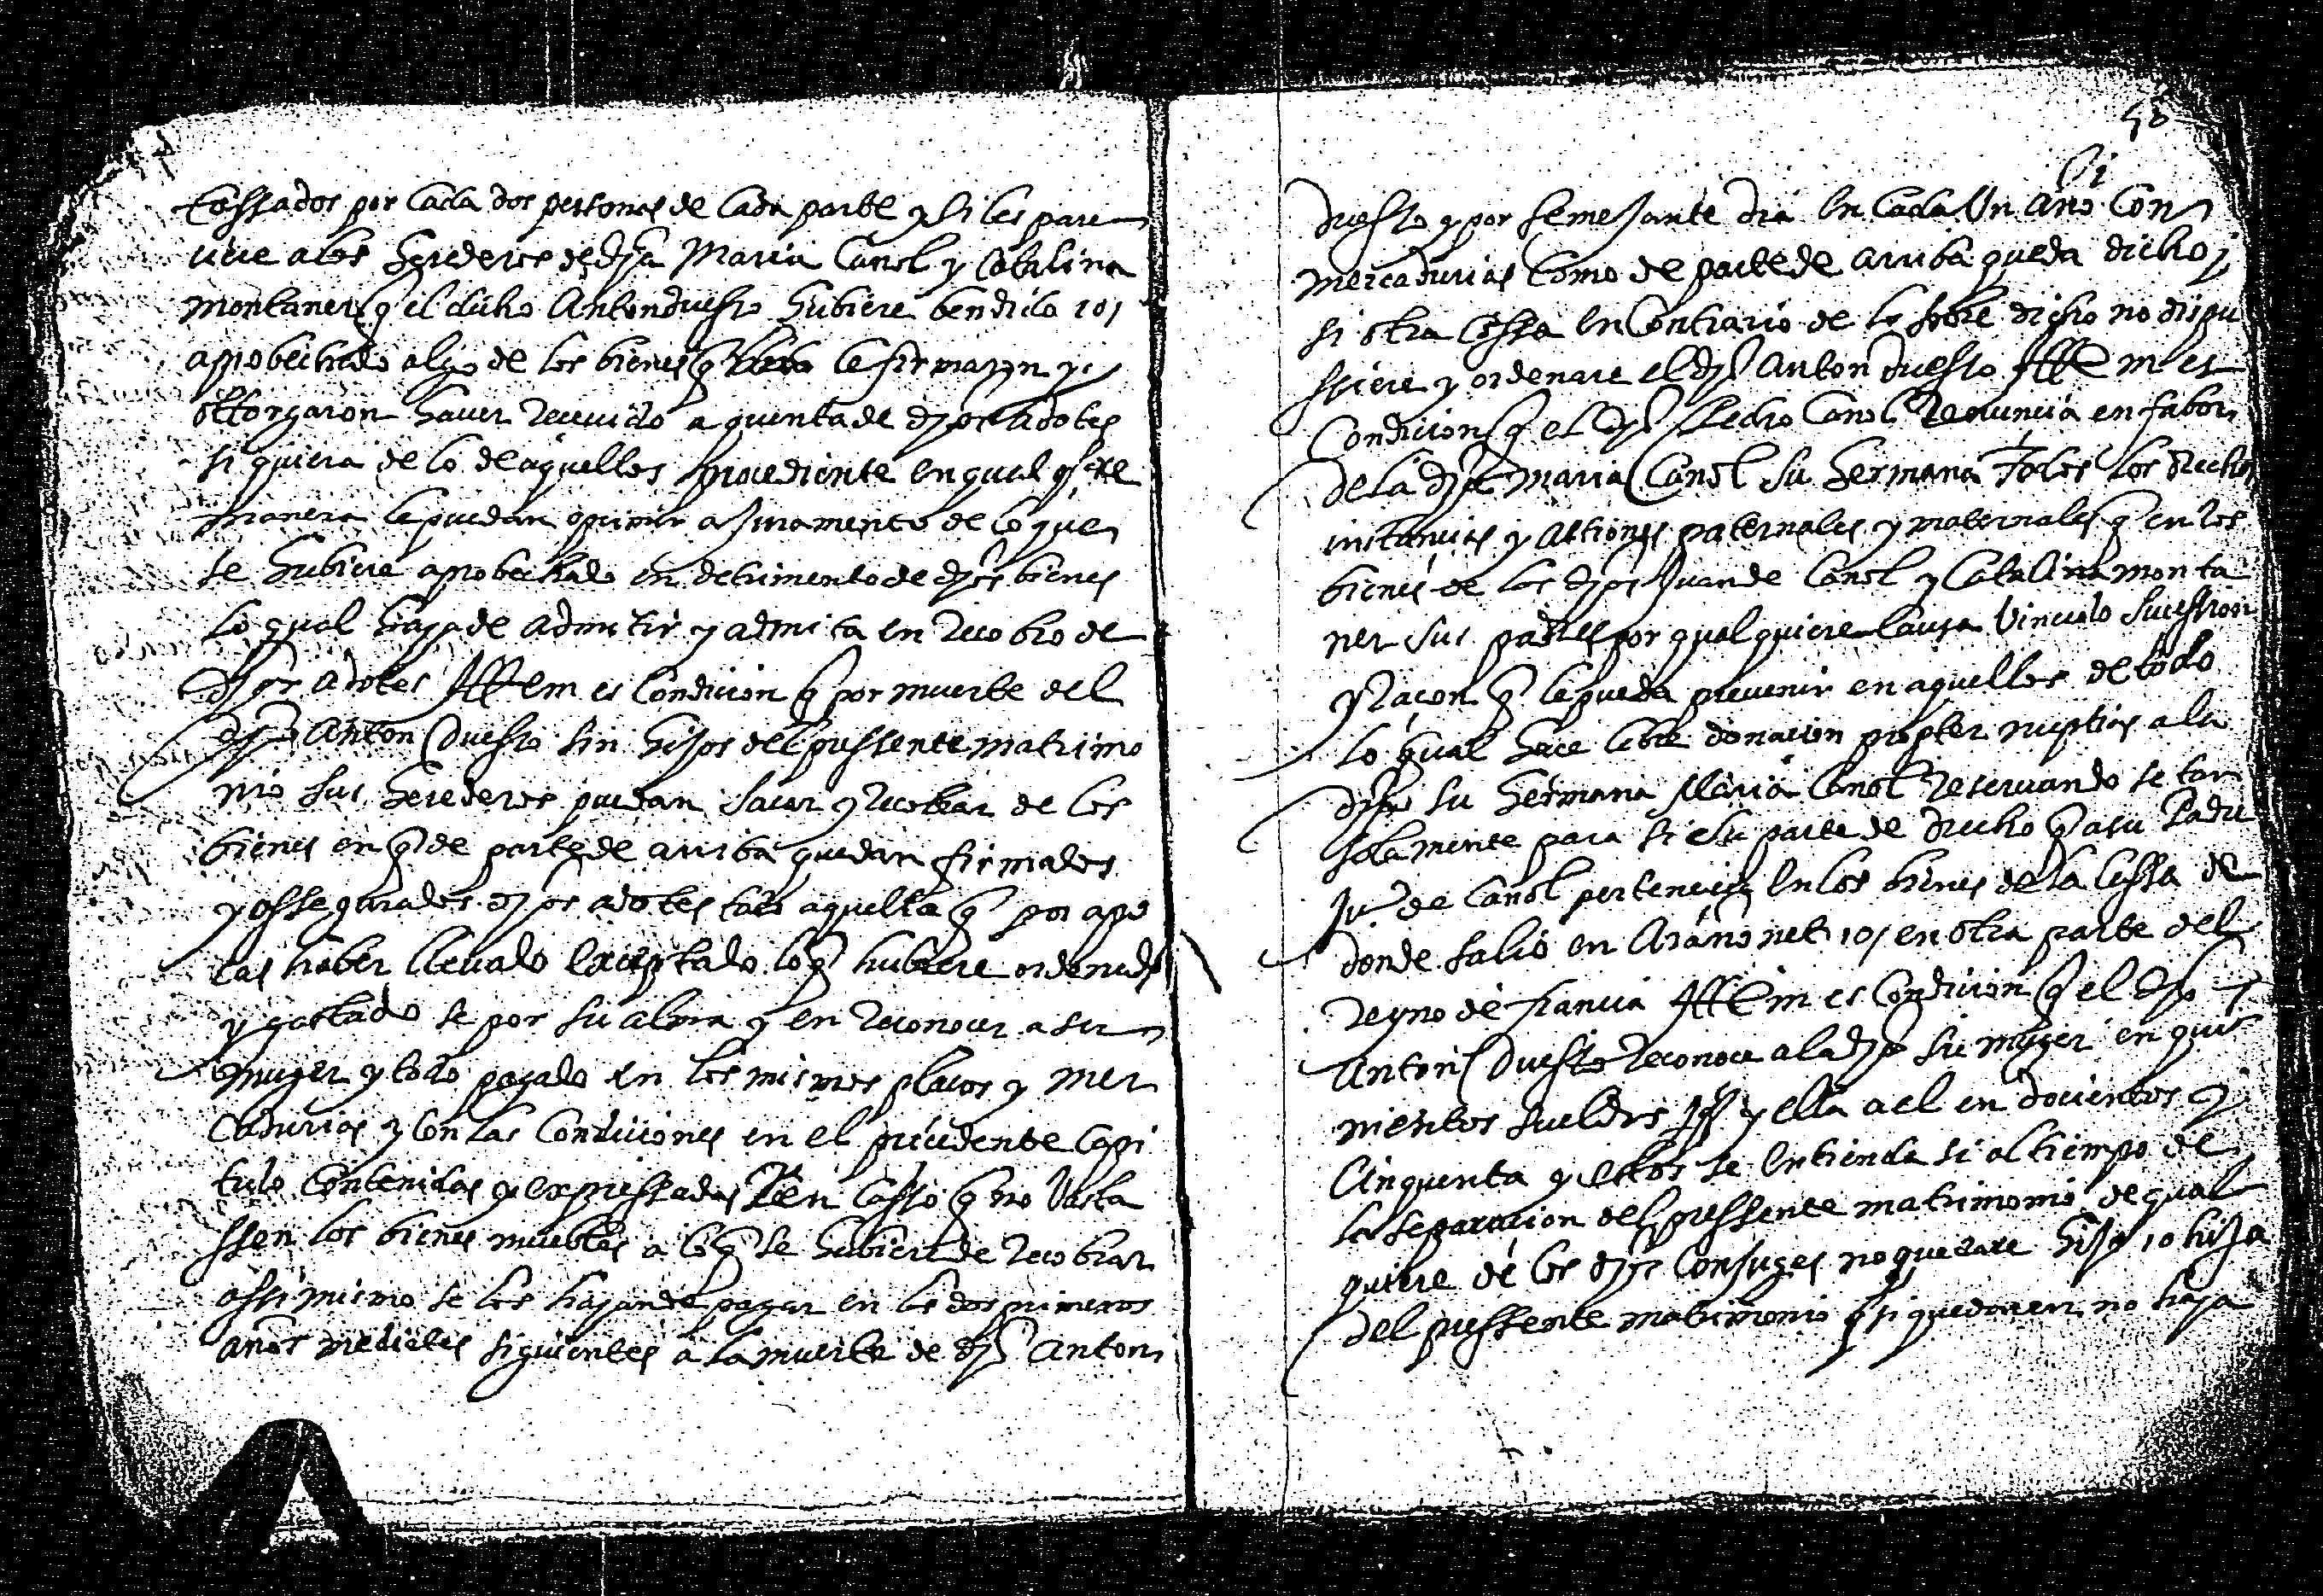 tassados por cada dos personas de cada parte y si les pare
ciere a los herederos de dha Maria Canol y Catalina
montaner q el dicho Anton duesso hubiere bendido io
aprobechado algo de los bienes q le firmaron y
ottorgaron haver recevido a quenta de dhos adotes
siquiera de lo de aquellos procediente en qual q re
manera le puedan oprimir a Juramento de lo que
se hubiere aprobechado en detrimento de dhos bienes
lo qual haya de admitir y admita en recobro de
dhos adotes Ittem es Condicion q por muerte del
dho Anton duesso sin hijos del pressente matrimo
nio sus herederos puedan sacar y recobrar de los
bienes en q de parte de arriba quedan firmados
y assegurados dhos adotes todo aquello q por apo
cas haber llevado exceptado lo q hubiere ordenado
y gastado se por su alma y en reconocer a su
muger y todo pagado en los mismos placos y mer
cadurias y con las Condiciones en el precedente capi
tulo Contenidas y expressadas Y en Casso q no basta
ssen los bienes muebles a lo q se hubiere de recobrar
assi mismo se los hayan de pagar en los dos primeros
años siguientes a la muerte de dho Anton
58
duesso y por semejante dia en cada Un año Con
mercadurias como de parte de arriba queda dicho
si otra cossa en Contrario de lo sobre dicho no dispu
ssiere y ordenare el dho Anton duesso Ittem es
Condicion q el dho Pedro Canol renuncia en fabor
de la dha maria Canol su hermana todos los drechos
instancias y actiones paternales y maternales q en los
bienes de los dhos Juan de Canol y Catalina monta
ner sus padres por qualquiere causa Vinculo sucession
y racon q le pueda prevenir en aquellos de todo
lo qual hace libre donacion propter nuptias a la
dha su hermana Maria Canol reservando se tan
solamente para si su parte de drecho q a su Padre
Ju de Canol pertenecia en los bienes de la Cassa de
donde salio en io en otra parte del
reyno de francia Ittem es Condicion q el dho
Anton duesso reconoce a la dha su muger en qui
nientos sueldos Jqs y ella a el en docientos y
Cinquenta y estos se entienda si al tiempo de
la separacion del pressente matrimonio de qual
quiere de los dhos Conjuges no quedare hijo io hija
del pressente matrimonio q si quedaren no haya